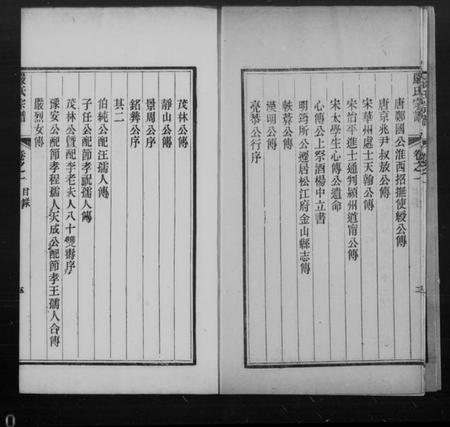 嚴氏宗譜
卷之一
唐鄭國公淮西招撫使綬公傳
唐京兆尹叔敖公傳
宋華州處士天翰公傳
宋治平進士通判潁州道甯公傳
宋太學生心傳公遺命
心傳公上祭酒楊中立書
明筠所公遷居松江府金山縣志傳
軼蓉公傳
漢明公傳
亮恭公行序
三
茂林公傳
靜山公傳
景周公序
銘彝公序
其二
伯純公配汪孺人傳
子任公配節孝戴孺人傳
茂林公暨配李老夫人八十雙壽序
豫安公配節孝程孺人天成公配節孝王孺人合傳
嚴烈女傳
嚴氏宗譜
卷之一
目錄